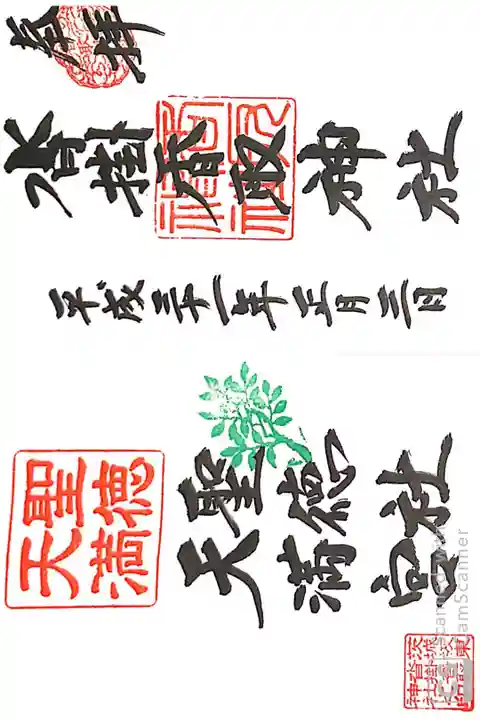 奉拝
沓掛香取神社
平成三十一年正月三日
聖徳社
天満宮
聖徳
天満
CamScanner